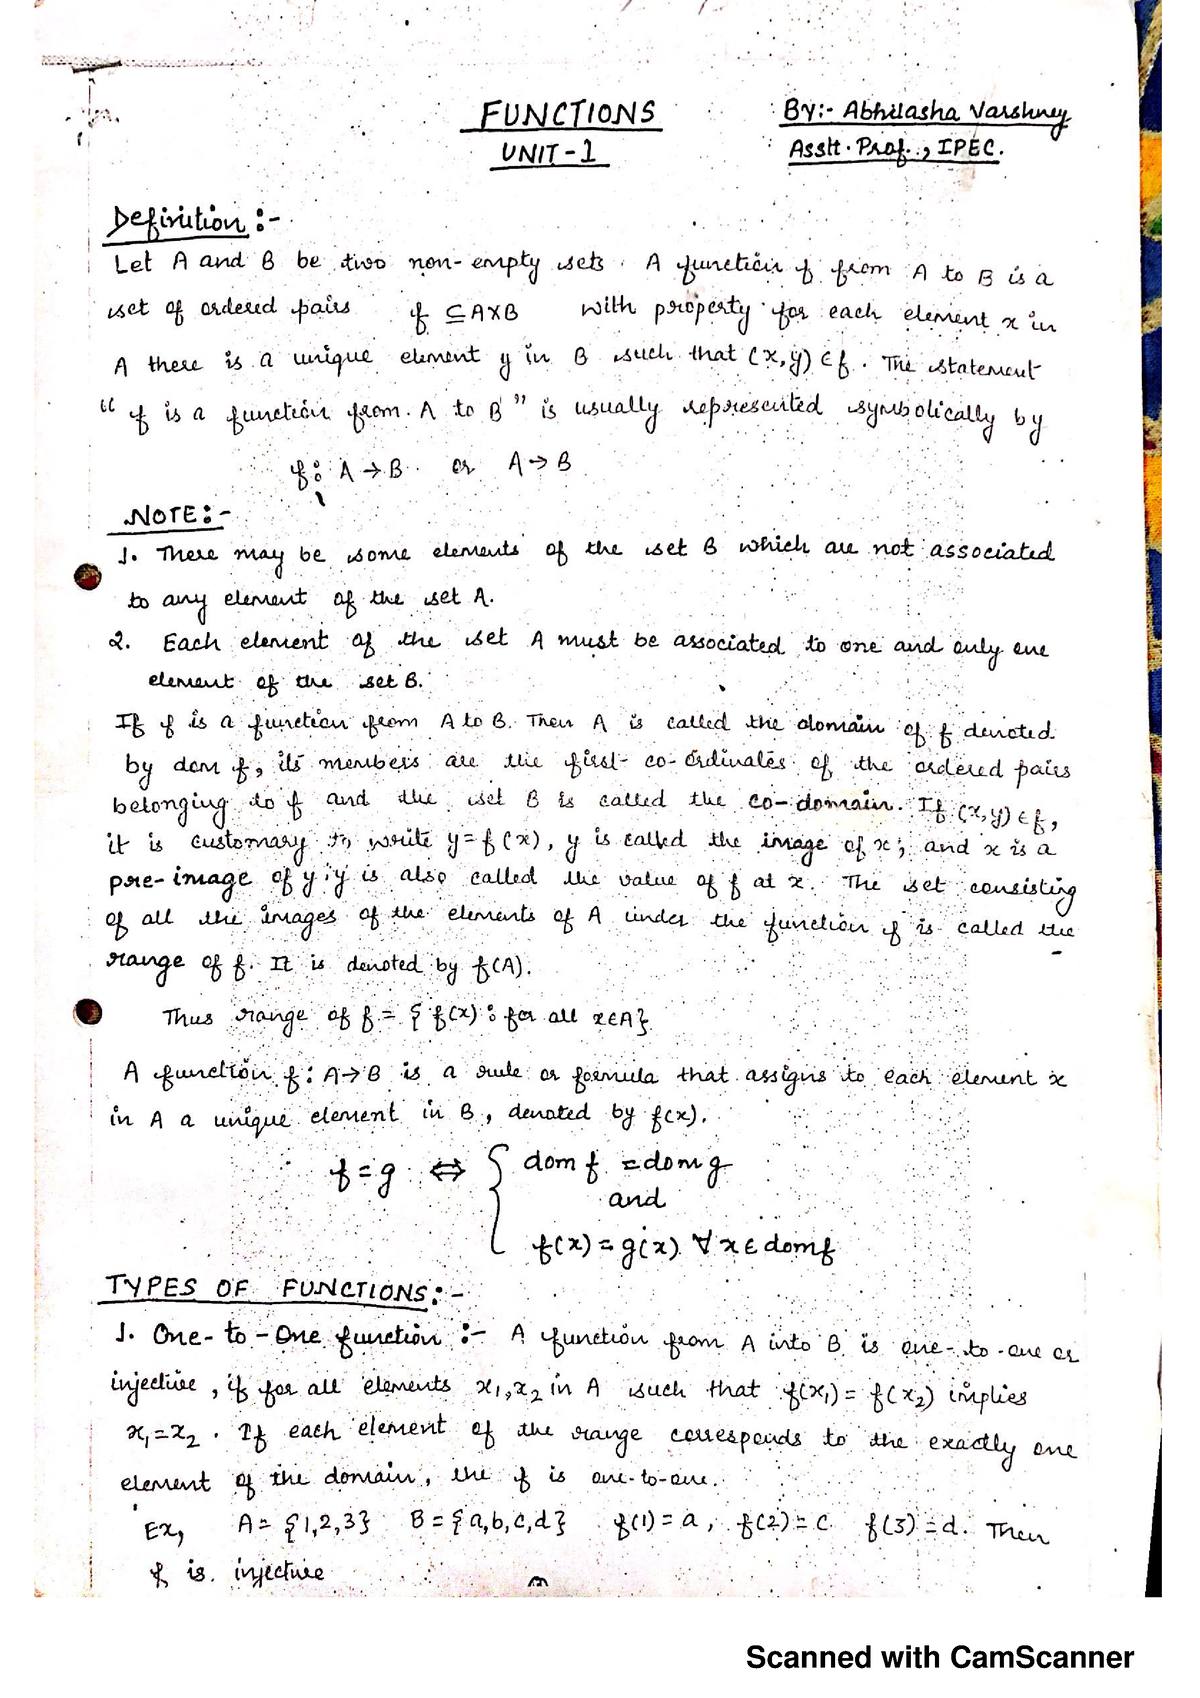 FUNCTIONS
UNIT-1
By:- Abhilasha Varshney
Asstt. Prof., IPEC.
Definition :-
Let A and B be two non-empty sets. A function f from A to B is a
set of ordered pairs f ⊆ A×B with property for each element x in
A there is a unique element y in B such that (x,y) ∈ f. The statement
“f is a function from A to B” is usually represented symbolically by
f: A → B or A → B
NOTE:-
1. There may be some elements of the set B which are not associated
to any element of the set A.
2. Each element of the set A must be associated to one and only one
element of the set B.
If f is a function from A to B. Then A is called the domain of f denoted
by dom f, its members are the first co-ordinates of the ordered pairs
belonging to f and the set B is called the co-domain. If (x,y) ∈ f,
it is customary to write y=f(x), y is called the image of x; and x is a
pre-image of y; y is also called the value of f at x. The set consisting
of all the images of the elements of A under the function f is called the
range of f. It is denoted by f(A).
Thus range of f = {f(x): for all x∈A}
A function f: A→B is a rule or formula that assigns to each element x
in A a unique element in B, denoted by f(x).
f=g ⇔ { dom f = dom g
and
f(x) = g(x) ∀ x ∈ dom f
TYPES OF FUNCTIONS:-
1. One-to-One function :- A function from A into B is one-to-one or
injective, if for all elements x₁,x₂ in A such that f(x₁) = f(x₂) implies
x₁=x₂. If each element of the range corresponds to the exactly one
element of the domain, the f is one-to-one.
Ex, A = {1,2,3} B = {a,b,c,d} f(1) = a, f(2) = c f(3) = d. Then
f is injective
Scanned with CamScanner